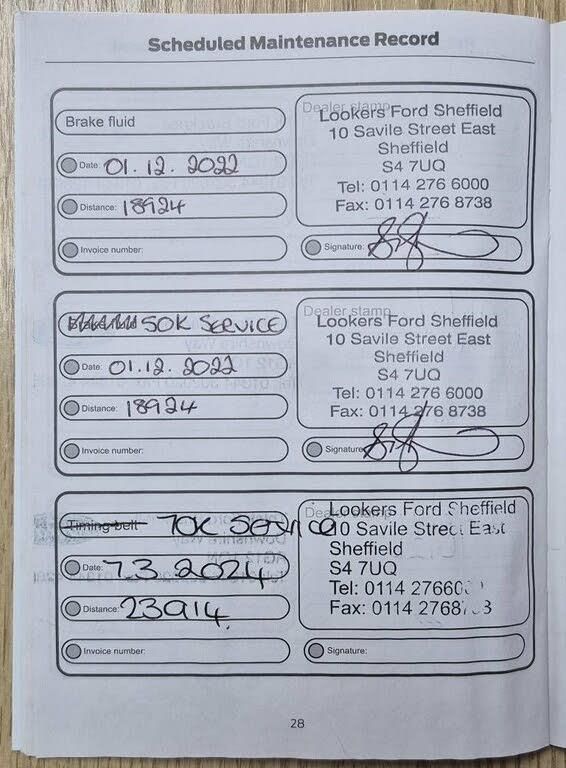 Scheduled Maintenance Record
Brake fluid
Date: 01.12.2022
Distance: 18924
Invoice number:
Dealer stamp
Lookers Ford Sheffield
10 Savile Street East
Sheffield
S4 7UQ
Tel: 0114 276 6000
Fax: 0114 276 8738
Signature:
Brake fluid 50K SERVICE
Date: 01.12.2022
Distance: 18924
Invoice number:
Dealer stamp
Lookers Ford Sheffield
10 Savile Street East
Sheffield
S4 7UQ
Tel: 0114 276 6000
Fax: 0114 276 8738
Signature:
Timing belt 70K Service
Date: 7.3.2024
Distance: 23914.
Invoice number:
Dealer stamp
Lookers Ford Sheffield
10 Savile Street East
Sheffield
S4 7UQ
Tel: 0114
Fax: 0114
Signature:
28